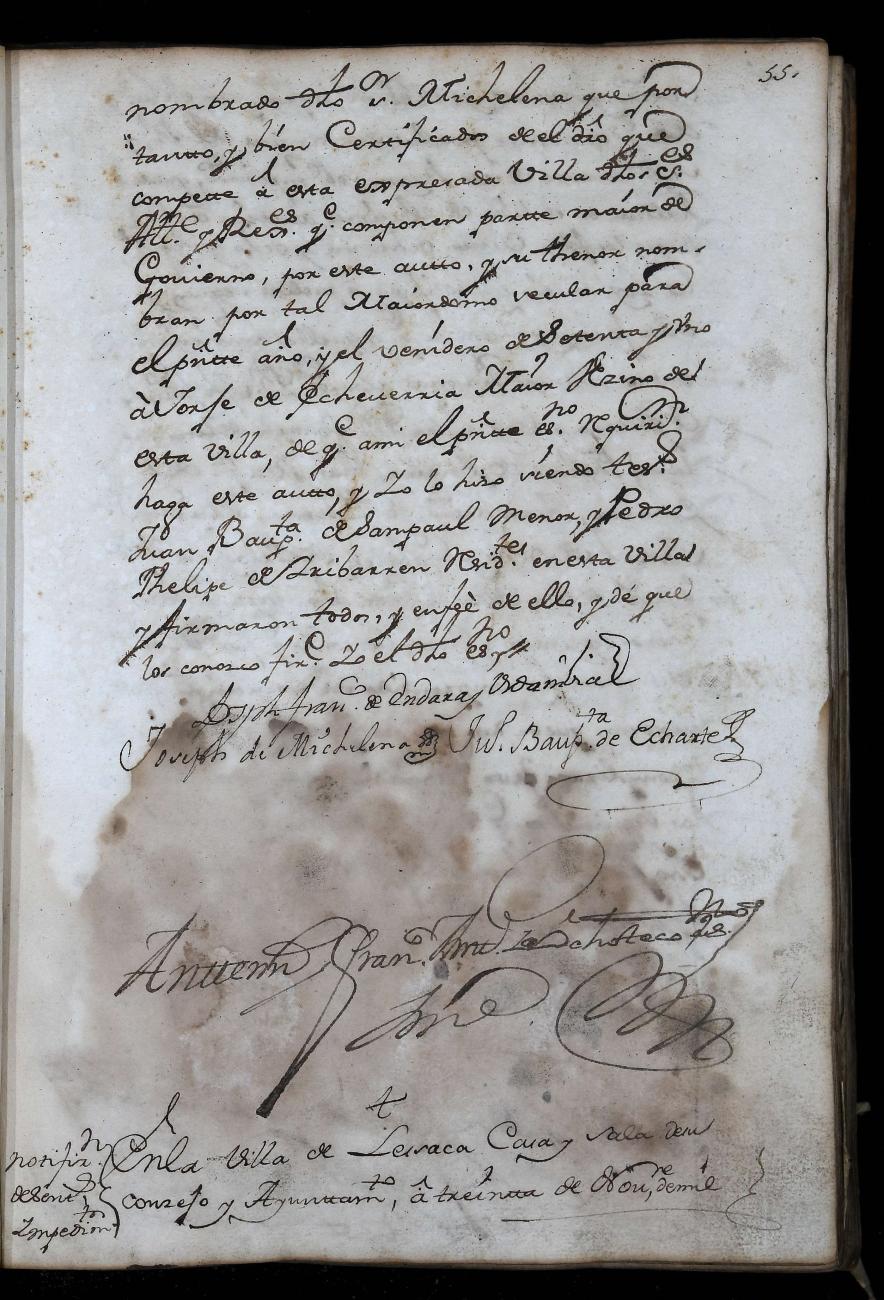 55.
nombrado dho Sr. Michelena que por
tantto, y bien Certificados de el dro que
compette â esta expresada Villa dhos Ses.
Alle. y Resres. qe. componen partte maior de
Govierno, por este autto, y su thenor nom-
bran por tal Maiordomo secular para
el pntte año, y el venidero de Setenta y uno
à Jorse de Echeverria Maior Vezino de
esta Villa, de qe. a mi el pntte esno. Requirin.
haga este autto, y Yo lo hize siendo tes.
Juan Baupta. de Sampaul Menor, y Pedro
Phelipe de Iribarren Residtes. en esta Villa
y firmaron todos, y enfeè de ello, y dé que
los conozco firé. Yo el dho esno
Joseph Franco. de Endara y
Joseph de Michelena Jun. Baupta. de Echarte
Anttemi Franco.
notifin.
de Sent.
Impedimto.
En la Villa de Lessaca Casa y sala de su
conzejo y Ayunttamto, â treintta de Noure, de mil